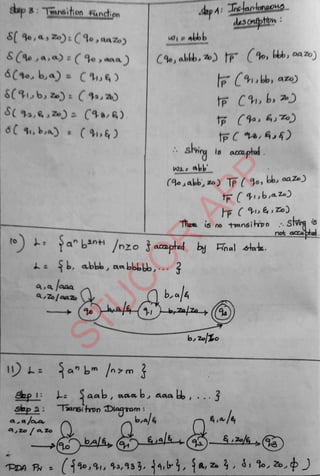 Step 3: Transition Function
δ(q0,a,z0)=(q0,aaz0)
δ(q0,a,a) = (q0,aaa)
δ(q0,b,a) = (q1,ε)
δ(q1,b,z0) = (q2,z0)
δ(q2,ε,z0) = (q2,ε)
δ(q1,b,a) = (q1,ε)
Step 4: Instantaneous description:
w1 = abbb
(q0,abbb,z0) ⊢P (q0,bbb,aaz0)
⊢P (q1,bb,az0)
⊢P (q1,b,z0)
⊢P (q2,ε,z0)
⊢P (q2,ε,ε)
∴ String is accepted.
w2 = abb
(q0,abb,z0) ⊢P (q0,bb,aaz0)
⊢P (q1,b,az0)
⊢P (q1,ε,z0)
There is no transition ∴ String is
not accepted
10) L = {a^n b^2n+1 /n≥0} accepted by Final state.
L = {b, abbb, aabbbbb, ...}
a,a/aaa
a,z0/aaz0
b,a/ε
q0
b,a/ε
q1
b,z0/z0
q2
b,z0/z0
STUCOR APP
11) L = {a^n b^m /n>m}
Step 1: L = {aab, aaab, aaabb, ...}
Step 2: Transition Diagram:
a,a/aa
a,z0/az0
b,a/ε
ε,a/ε
q0
b,a/ε
q1
ε,a/ε
q2
ε,z0/ε
q3
PDA PN = ({q0,q1,q2,q3}, {a,b}, {a,z0}, δ, q0, z0, φ)